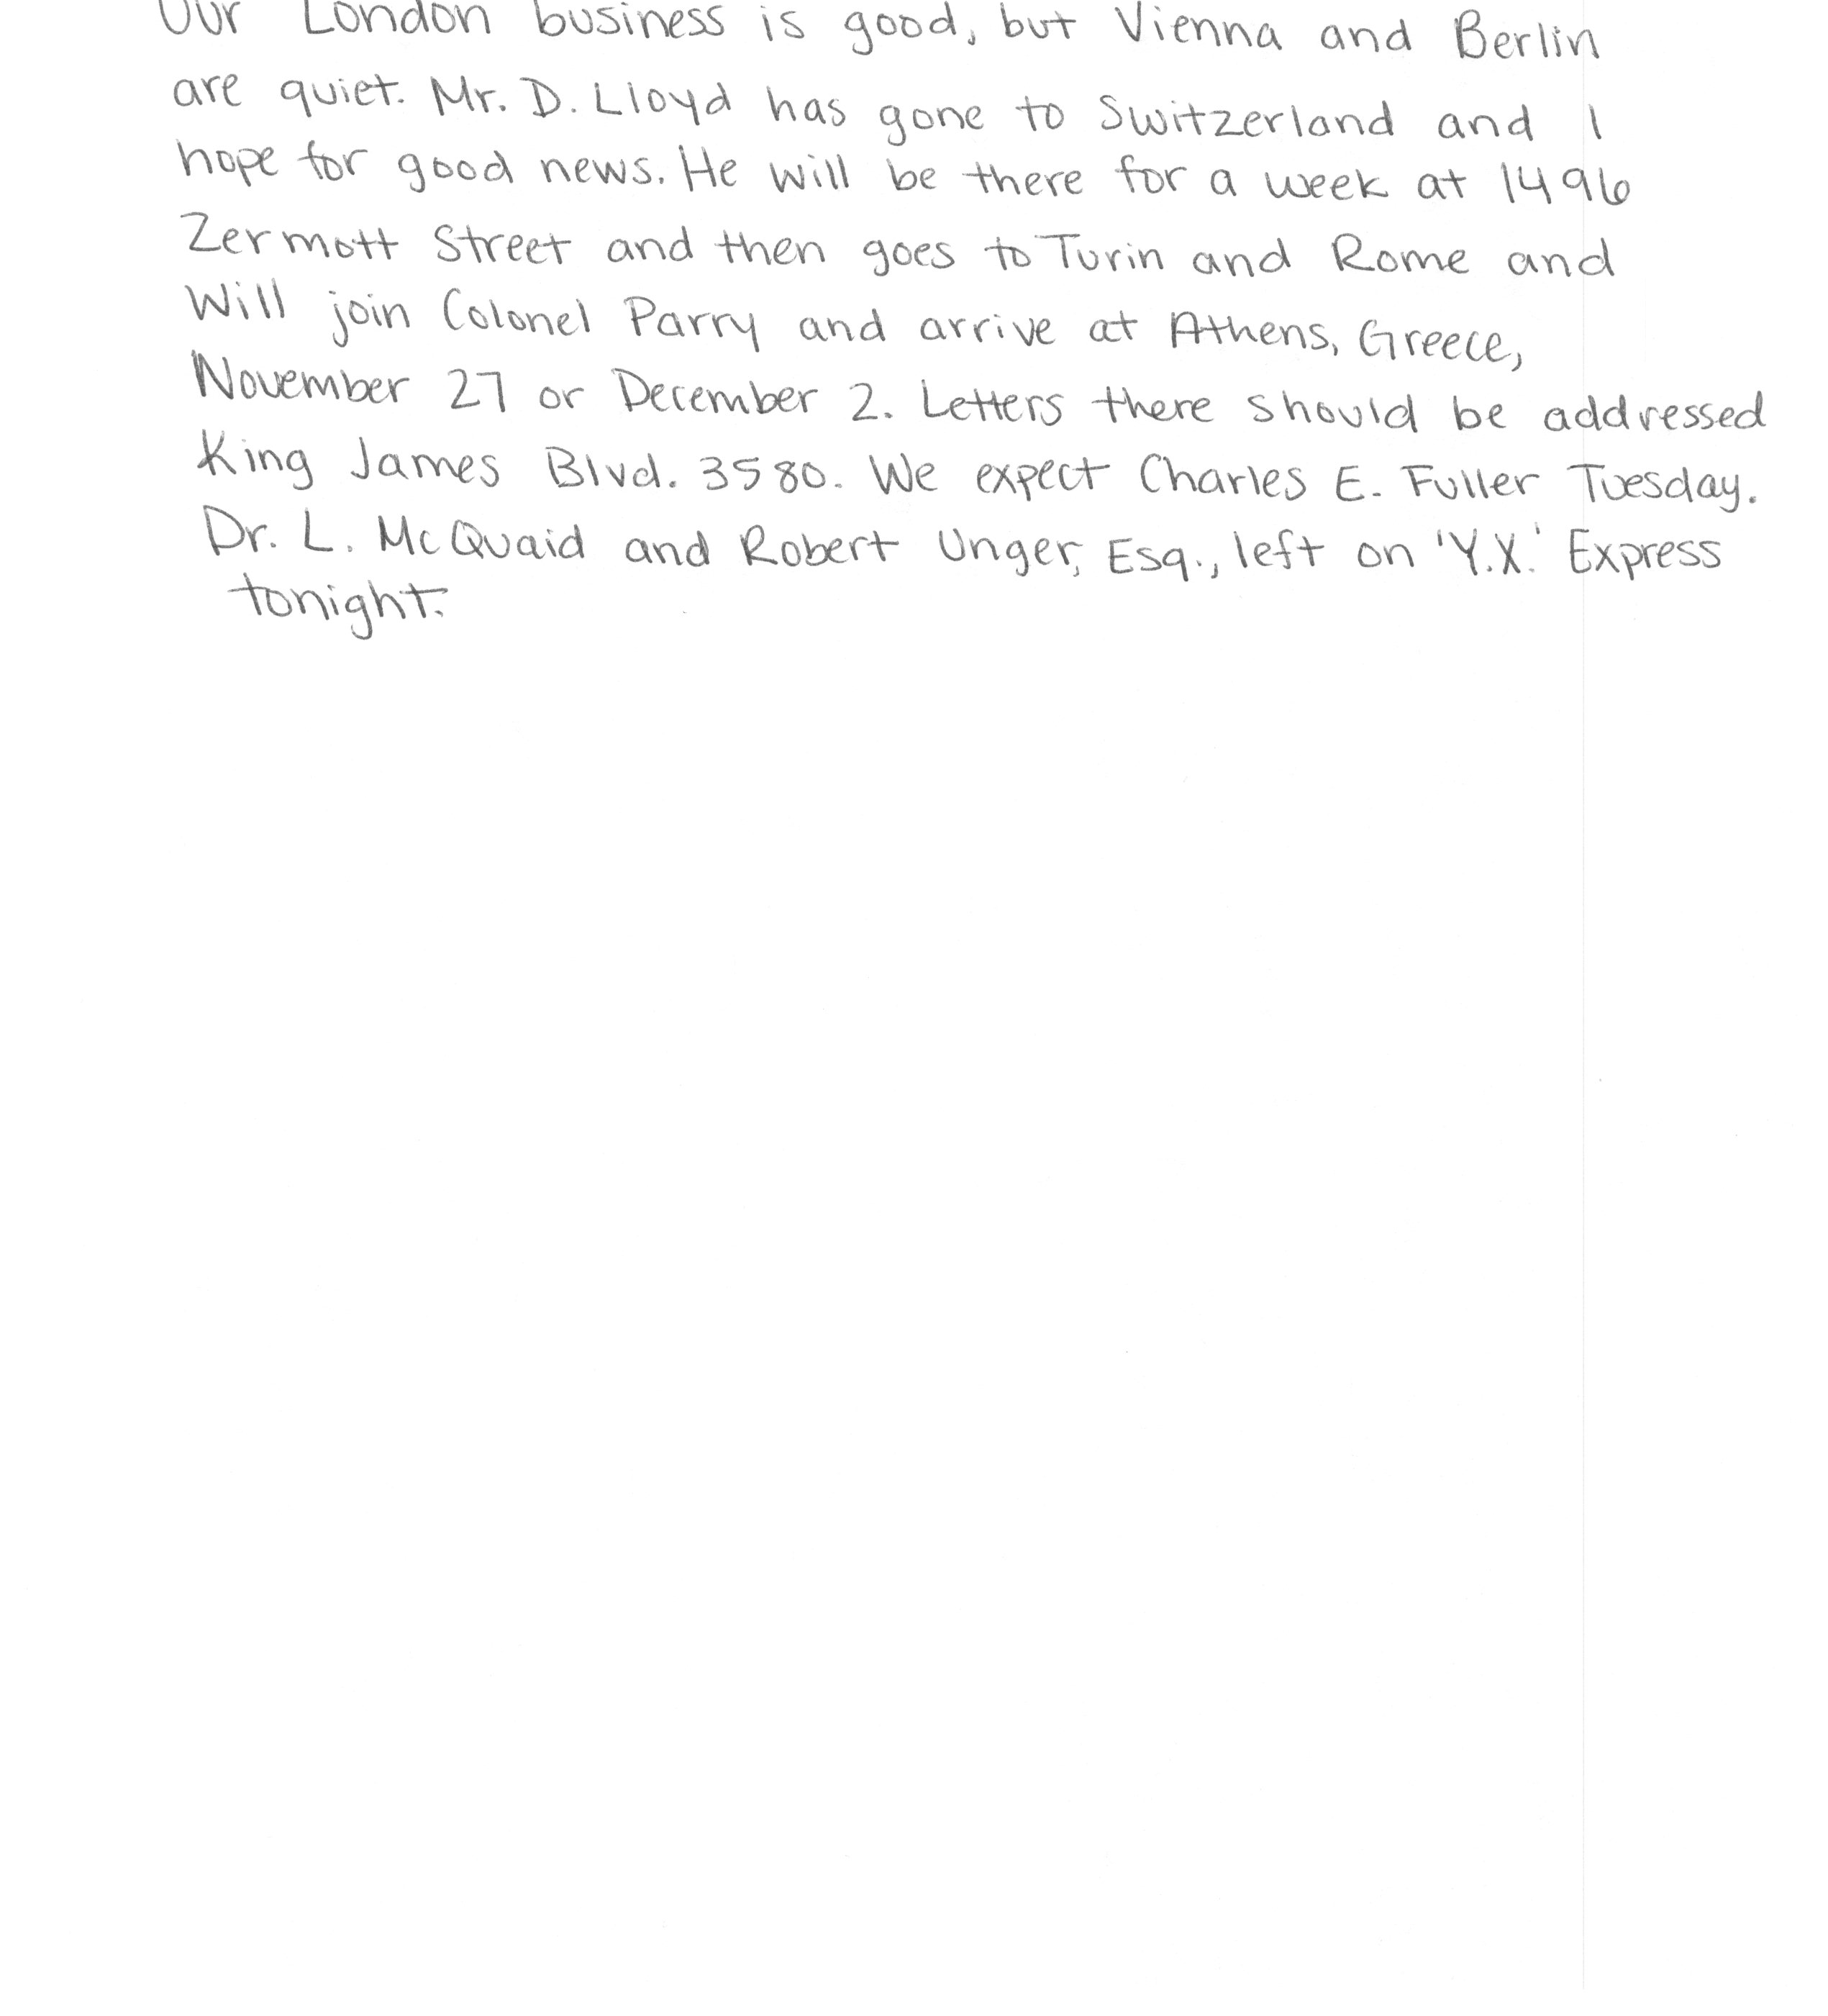 Our London business is good, but Vienna and Berlin
are quiet. Mr. D. Lloyd has gone to Switzerland and I
hope for good news. He will be there for a week at 1496
Zermott Street and then goes to Turin and Rome and
Will join Colonel Parry and arrive at Athens, Greece,
November 27 or December 2. Letters there should be addressed
King James Blvd. 3580. We expect Charles E. Fuller Tuesday.
Dr. L. McQuaid and Robert Unger, Esq., left on 'Y.X.' Express
tonight.